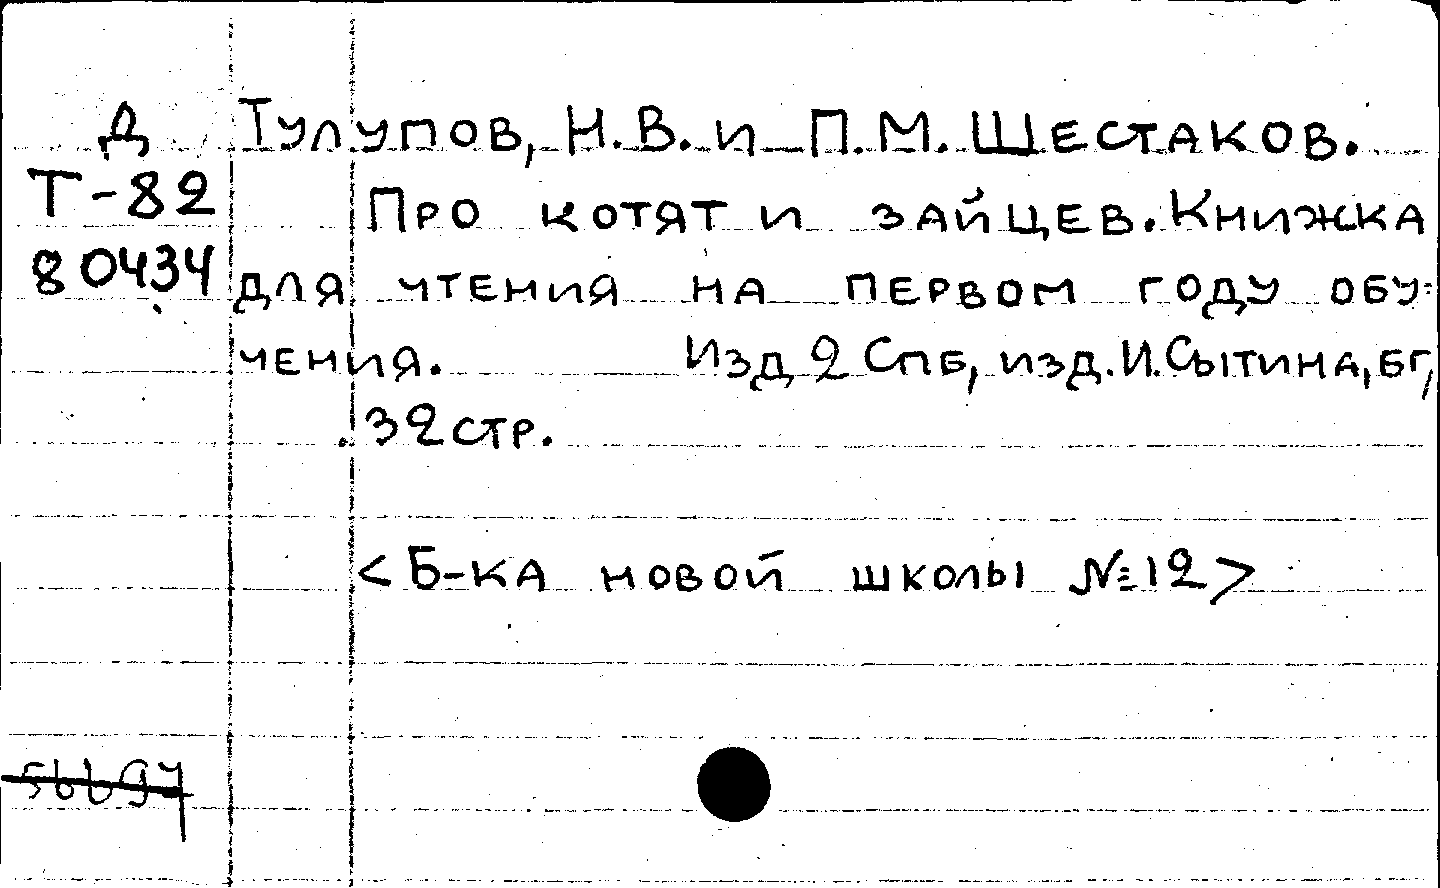 Д Тулупов, Н.В. и П.М. Шестаков.
Т-82 Про котят и зайцев. Книжка
80434 для чтения на первом году обу-
чения. Изд 2 Спб, изд. И. Сытина, бг,
32 стр.
<Б-ка новой школы №12>